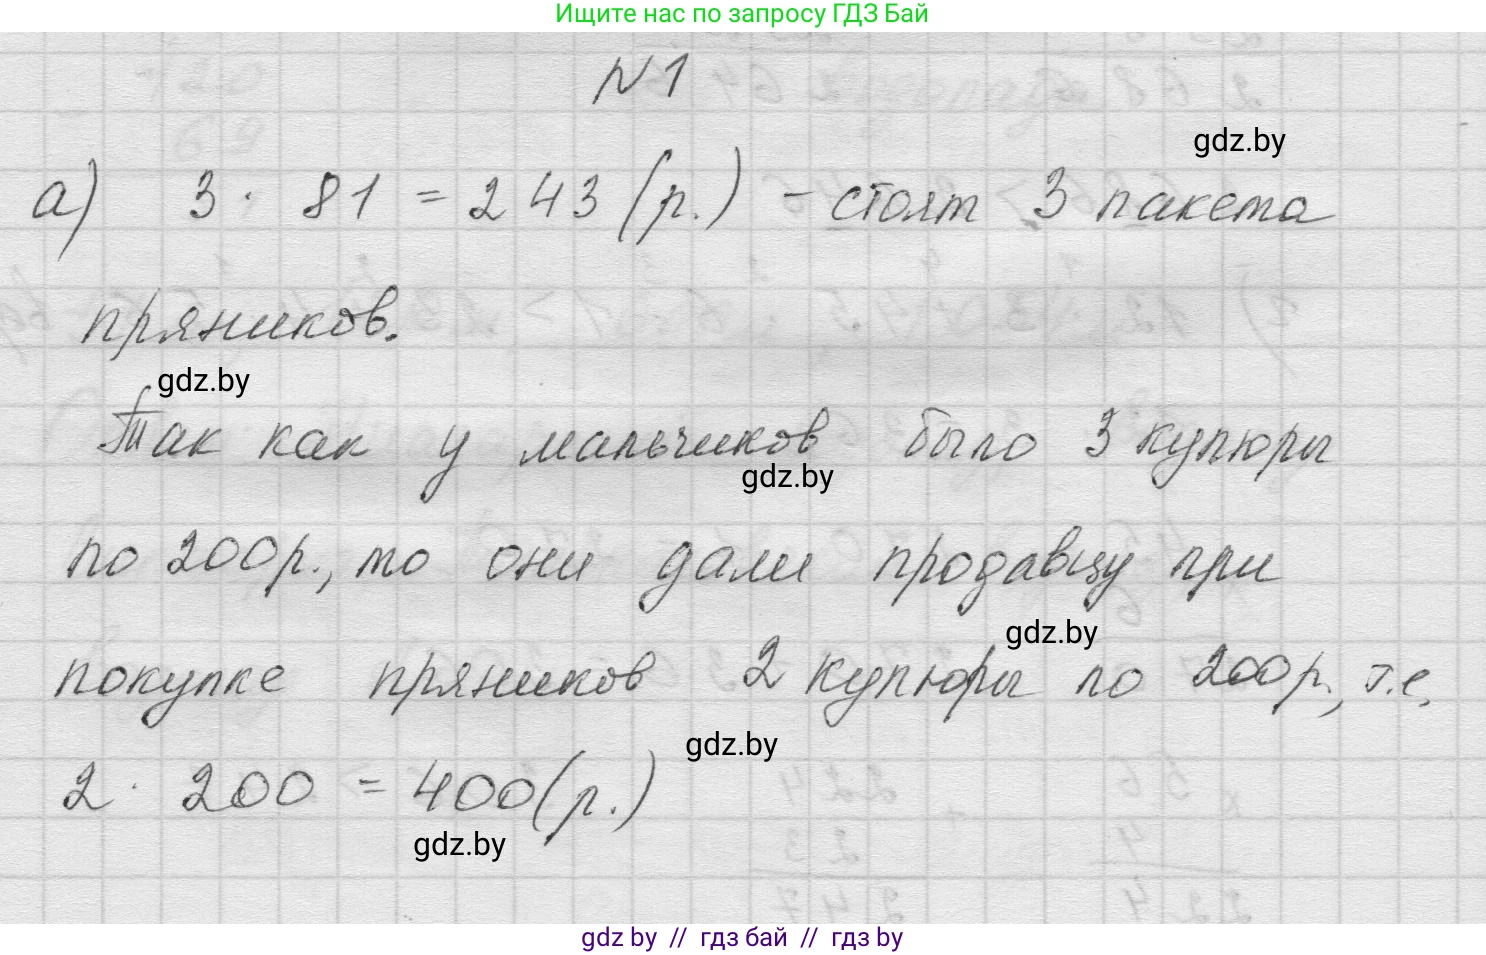 Ищите нас по запросу ГДЗ Бай
№1
gdz.by
а) 3 · 81 = 243 (р.) - стоят 3 пакета
пряников.
gdz.by
Так как у мальчиков было 3 купюры
gdz.by
по 200р., то они дали продавцу при
gdz.by
покупке пряников 2 купюры по 200р., т.е.
gdz.by
2 · 200 = 400 (р.)
gdz.by
gdz by // гдз бай // гдз by